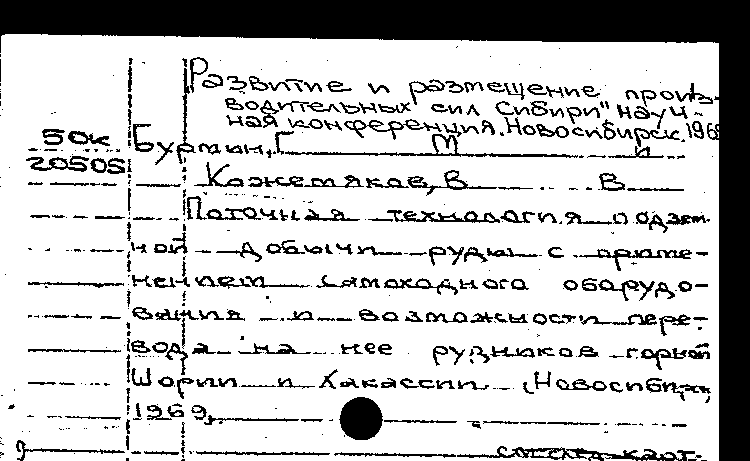 Развитие и размещение произ-
водительных сил Сибири" науч-
ная конференция. Новосибирск. 1969
50к
20505
Бурмин, Г М и
Кожемякав, В В
Поточная технология подзем-
ной добычи руды с приме-
нением самоходного оборудо-
вания и возможности пере-
вода на нее рудников горной
Шории и Хакассии. Новосибирск,
1969,
см след карт.